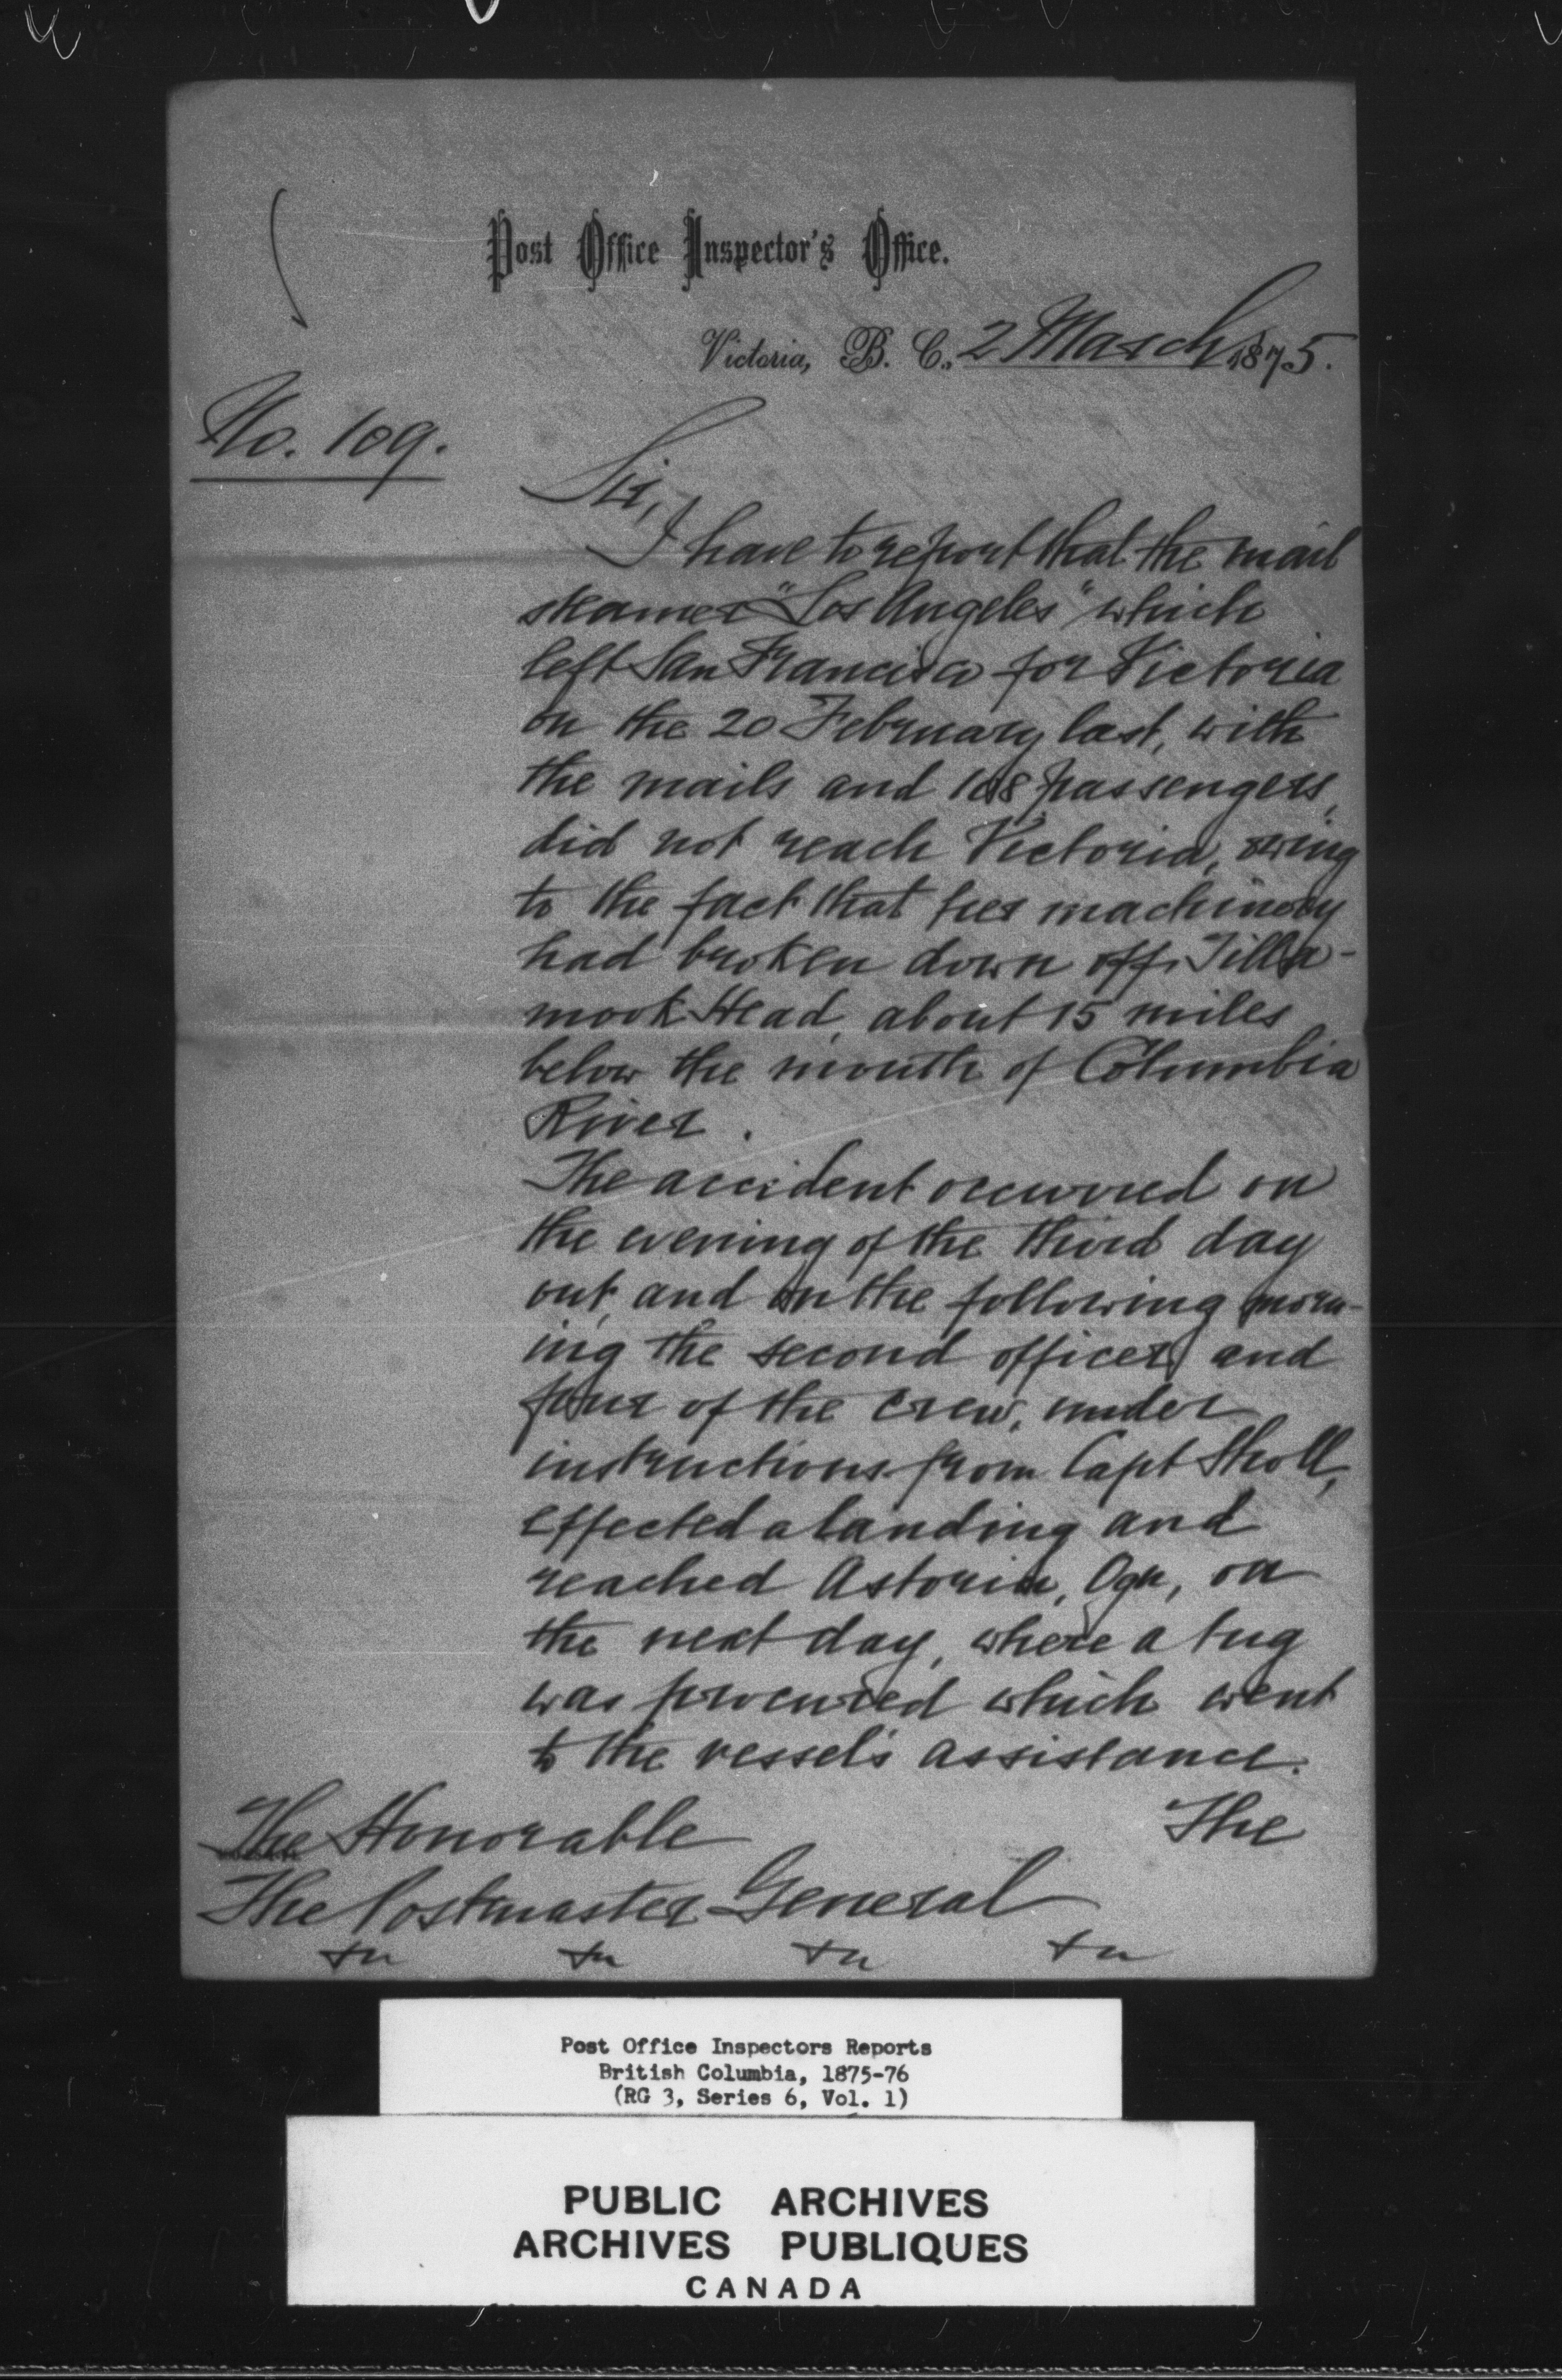 Post Office Inspector's Office.
Victoria, B. C., 2 March 1875.
No. 109.
Sir,
I have to report that the mail
steamer "Los Angeles" which
left San Francisco for Victoria
on the 20 February last, with
the mails and 108 passengers,
did not reach Victoria, owing
to the fact that her machinery
had broken down off Tilla-
mook Head, about 15 miles
below the mouth of Columbia
River.
The accident occurred on
the evening of the third day
out, and on the following morn-
ing the second officer and
four of the crew, under
instructions from Capt Sholl,
effected a landing and
reached Astoria, Ogn, on
the next day, where a tug
was procured which went
to the vessel's assistance.
The
The Honorable
The Postmaster General
Post Office Inspectors Reports
British Columbia, 1875-76
(RG 3, Series 6, Vol. 1)
PUBLIC ARCHIVES
ARCHIVES PUBLIQUES
CANADA